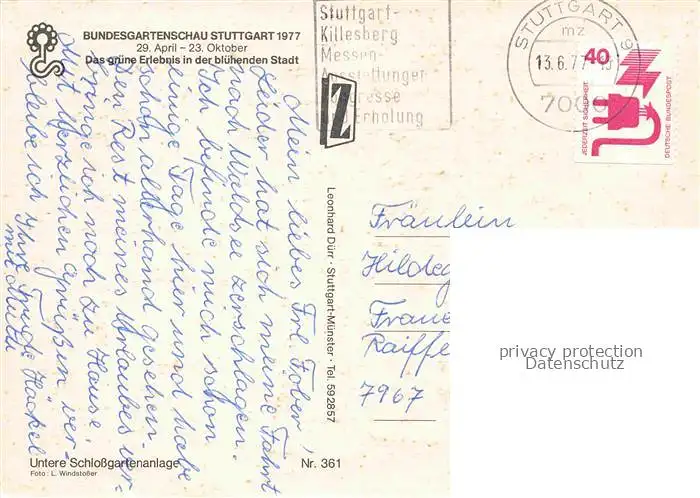 BUNDESGARTENSCHAU STUTTGART 1977
29. April – 23. Oktober
Das grüne Erlebnis in der blühenden Stadt
Stuttgart-
Killesberg
Messen-
Ausstellungen
Kongresse
Erholung
STUTTGART 9
mz
13.6.77
7000
40
JEDERZEIT SICHERHEIT
DEUTSCHE BUNDESPOST
Z
Mein liebes Frl. Föber,
Leider hat sich meine Fahrt
nach Waldsee zerschlagen.
Ich befinde mich schon
einige Tage hier und habe
schon allerhand gesehen.
Den Rest meines Urlaubes ver-
bringe ich noch zu Hause.
Mit herzlichen Grüßen ver-
bleibe ich Ihre Trude Hackel
mit Mutti
Leonhard Dürr · Stuttgart-Münster · Tel. 592857
Fräulein
Hildeg
Fraue
Raiffe
7967
privacy protection
Datenschutz
Untere Schloßgartenanlage
Foto: L. Windstoßer
Nr. 361